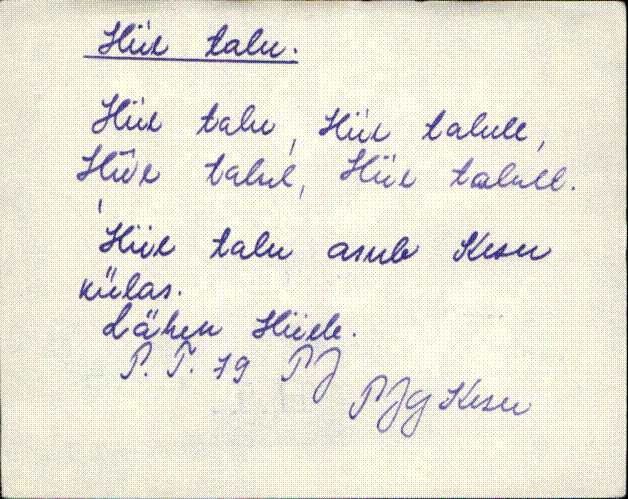 Hiie talu.
Hiie talu, Hiie talule,
Hiie talul, Hiie talule.
Hiie talu asub Kesu
külas.
Lähen Hiiele.
P. T. 79 PJ
PJg Kesu